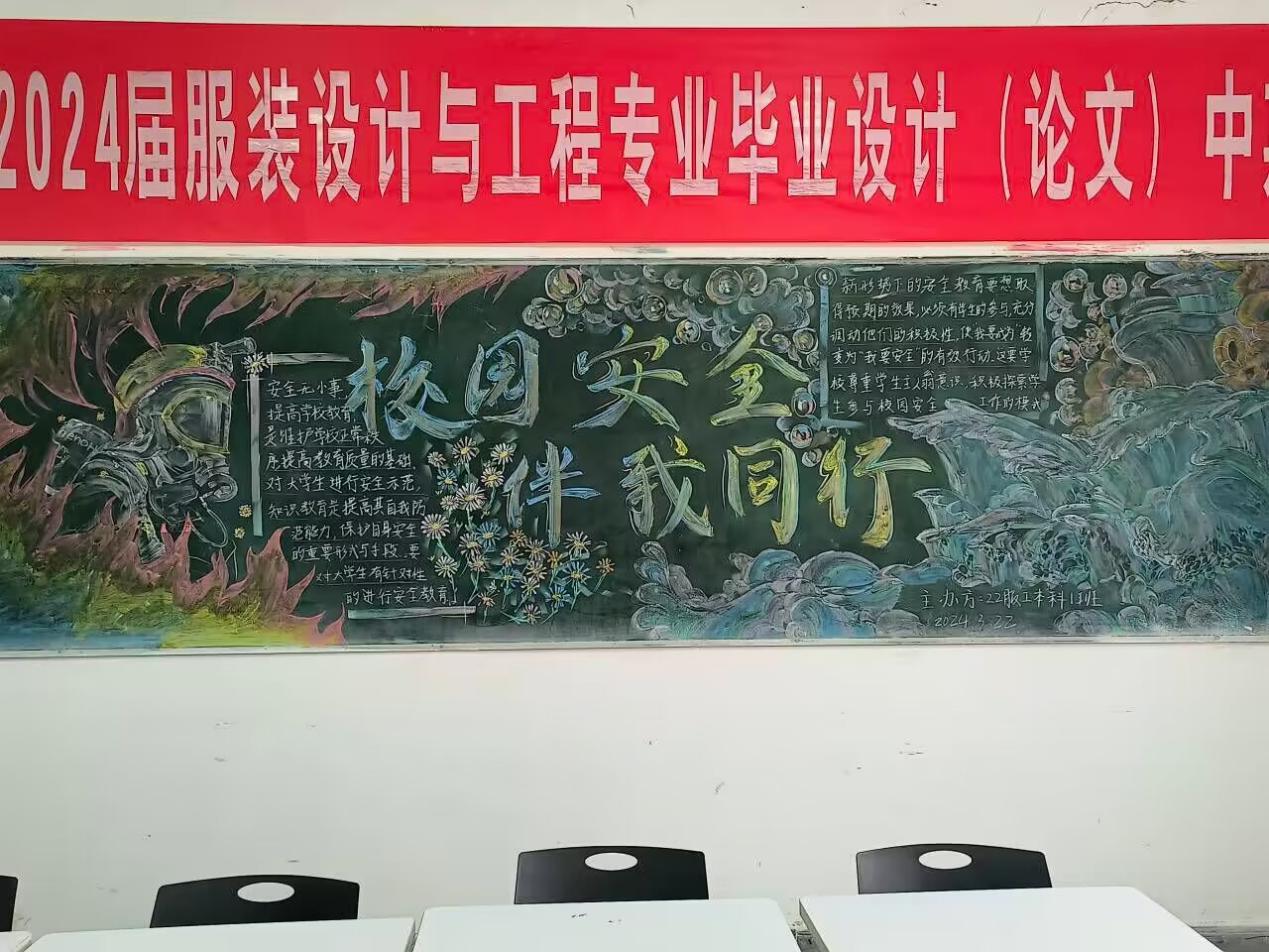 2024届服装设计与工程专业毕业设计（论文）中
校园安全
伴我同行
安全无小事,
提高学校教育
是维护学校正常秩
序提高教育质量的基础.
对大学生进行安全示范.
知识教育是提高其自我防
范能力,保护自身安全
的重要形式与手段.要
对大学生有针对性
的进行安全教育.
新形势下的安全教育要想取
得预期的效果,必须有学生的参与,充分
调动他们的积极性,使"我要成为"教
变为"我要安全"的有效行动.这要学
校尊重学生主人翁意识.积极探索学
生参与校园安全 工作的模式
主办方:22服工本科1班
2024.3.22